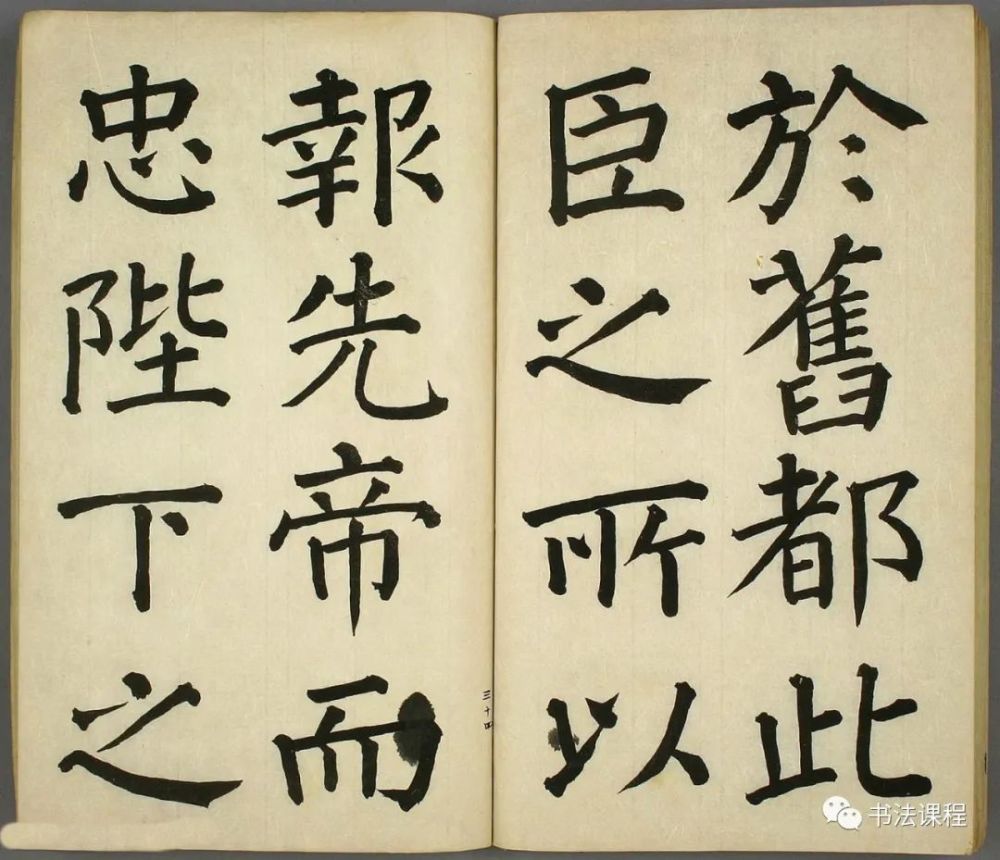 於舊都此
臣之所以
報先帝而
忠陛下之
三十四
书法课程